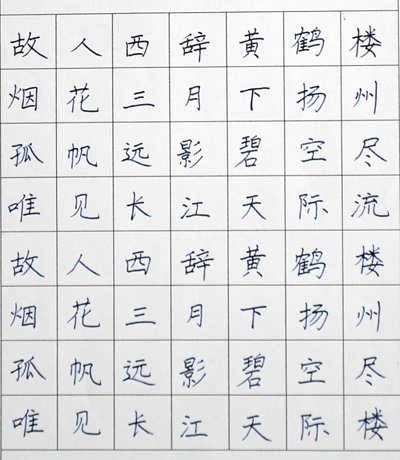 故人西辞黄鹤楼
烟花三月下扬州
孤帆远影碧空尽
唯见长江天际流
故人西辞黄鹤楼
烟花三月下扬州
孤帆远影碧空尽
唯见长江天际楼